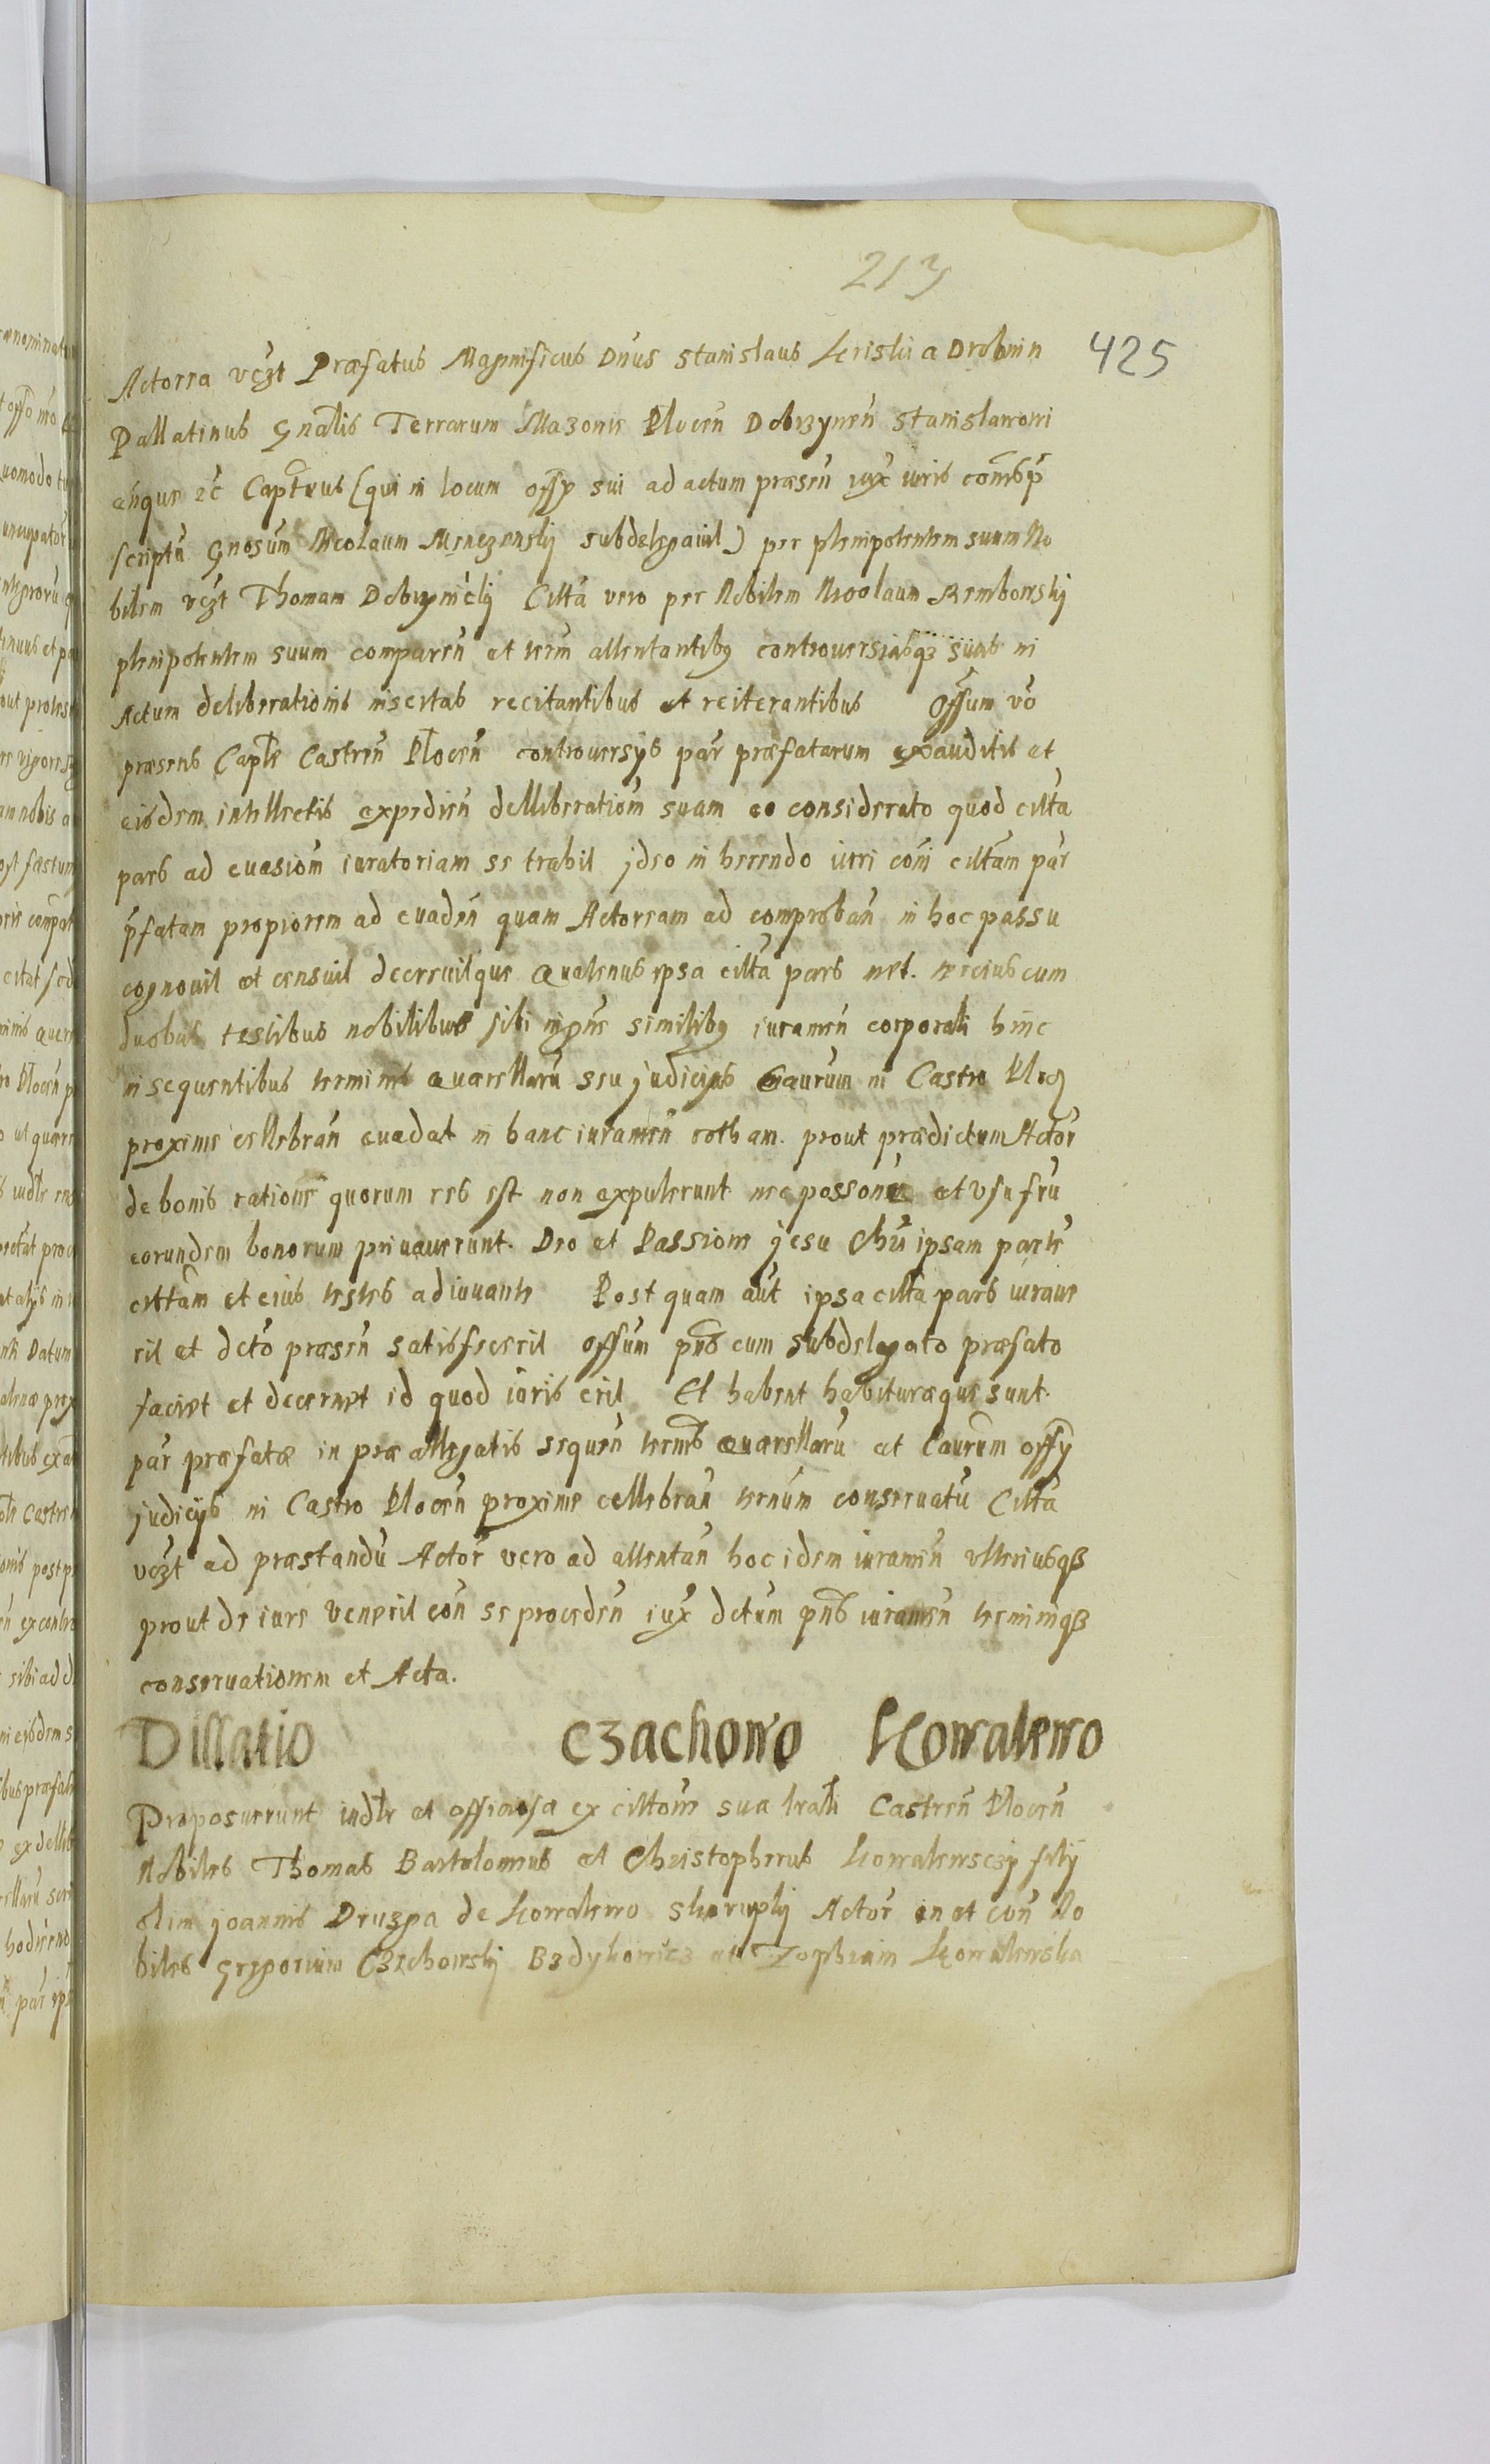 213
425
Actorea vczt Præfatus Magnificus Dnus Stanislaus Kriski a Drobnin
Pallatinus Gnalis Terrarum Mazouie Plocen Dobrzynen Stanislawowi
ensque zc Captneus (qui in locum offy sui ad actum præsen iux iuris
scriptu Gnosum Nicolaum subdelegauit) per plenipotentem suum No
bilem vczt Thomam Dobrzynicly Citta vero per Nobilem Nicolaum Rembowsky
plenipotentem suum comparen et term attentantibq controuersiasqz suas in
Actum deliberationis insertas recitantibus et reiterantibus Offum vo
præsens Capte Castren Plocen controuersys par præfatarum exauditis et
eisdem intellectis expedien delliberationm suam eo considerato quod citta
pars ad euasionm iuratoriam se trahit jdeo in herendo iuri coni cittam par
pfatam propiorem ad euaden quam Actoream ad comproban in hoc passu
cognouit et censuit decreuitque Quatenus ipsa citta pars met tercius cum
duobus testibus nobilibus sibi in gne similibq iuramen corporali hinc
in sequentibus terminis quærellaru seu judicijs Caurum in Castro Ploc
proxime cellebran euadat in hanc iuramen rotham. prout prædictum Actor
de bonis ratione quorum res est non expulerunt nec possone et vsufru
eorundem bonorum priuauerunt. Deo et Passione jesu Chri ipsam parte
cittam et eius testes adiuuante Post quam aut ipsa citta pars iuraue
rit et dcto præsen satisfecerit offum pns cum subdelegato præfato
faciet et decernet id quod iuris erit Et habent habituræque sunt
par præfatæ in præ allegatis sequen termis quærellaru et Caurum offy
judicijs in Castro Plocen proxime cellebran ternum conseruatu Citta
vczt ad præstandu Actor vero ad attentan hoc idem iuramen vlteriusqz
prout de iure venerit con se proceden iux dctum pns iuramen terminiqz
conseruationem et Acta.
Dillatio Czachowo Kowalewo
Proposuerunt iudte et officiosa ex cittone sua trali Castren Plocen
Nobiles Thomas Bartolomeus et Christopherus Kowalewsczy filij
olim joannis Druzga de Kowalewo Skorupky Actor in et con No
biles Gregorium Czachowsky Bzdykowicz et Zophiam Kowalewska